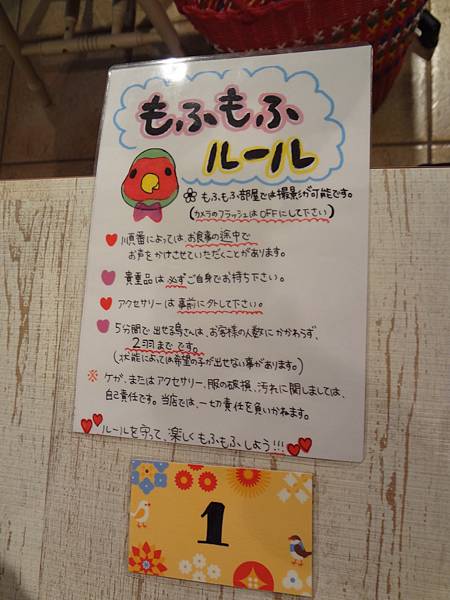 もふもふ
ルール
もふもふ部屋では撮影が可能です。
(カメラのフラッシュはOFFにして下さい)
順番によってはお食事の途中で
お声をかけさせていただくことがあります。
貴重品は必ずご自身でお持ち下さい。
アクセサリーは事前に外して下さい。
5分間で出せる鳥さんは、お客様の人数にかかわらず、
2羽までです。
(状態によっては希望の子が出せない事があります。)
※ケガ、またはアクセサリー、服の破損、汚れに関しましては、
自己責任です。当店では、一切責任を負いかねます。
ルールを守って、楽しくもふもふしよう!!!
1